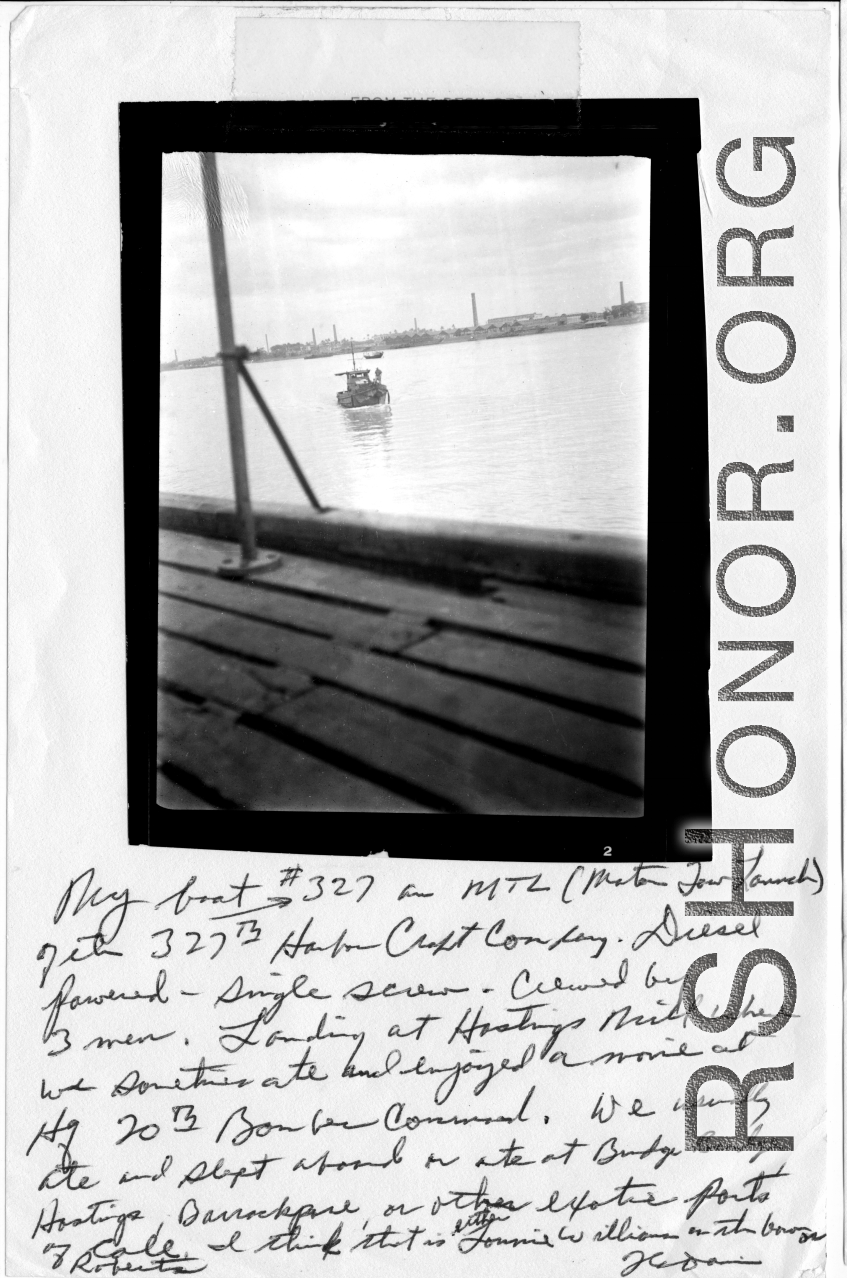 2
My boat #327 an MTL (Motor Tow Launch)
of the 327TH Harbor Craft Company. Diesel
powered - single screw. Crewed by
3 men. Landing at Hastings Mill where
we sometimes ate and enjoyed a movie at
Hq 20TH Bomber Command. We usually
ate and slept aboard or ate at Budge Budge,
Hastings, Barrackpore, or other exotic ports
of call. I think that is either Lonnie Williams on the bow or
Roberts
RSHONOR.ORG